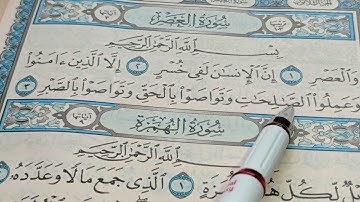 سُورَةُ الْعَصْرِ
بِسْمِ اللَّهِ الرَّحْمَٰنِ الرَّحِيمِ
وَالْعَصْرِ ١ إِنَّ الْإِنسَٰنَ لَفِى خُسْرٍ ٢ إِلَّا الَّذِينَ ءَامَنُوا۟
وَعَمِلُوا۟ الصَّٰلِحَٰتِ وَتَوَاصَوْا۟ بِالْحَقِّ وَتَوَاصَوْا۟ بِالصَّبْرِ ٣
سُورَةُ الْهُمَزَةِ
بِسْمِ اللَّهِ الرَّحْمَٰنِ الرَّحِيمِ
لِّكُلِّ ١ الَّذِى جَمَعَ مَالًا وَعَدَّدَهُۥ